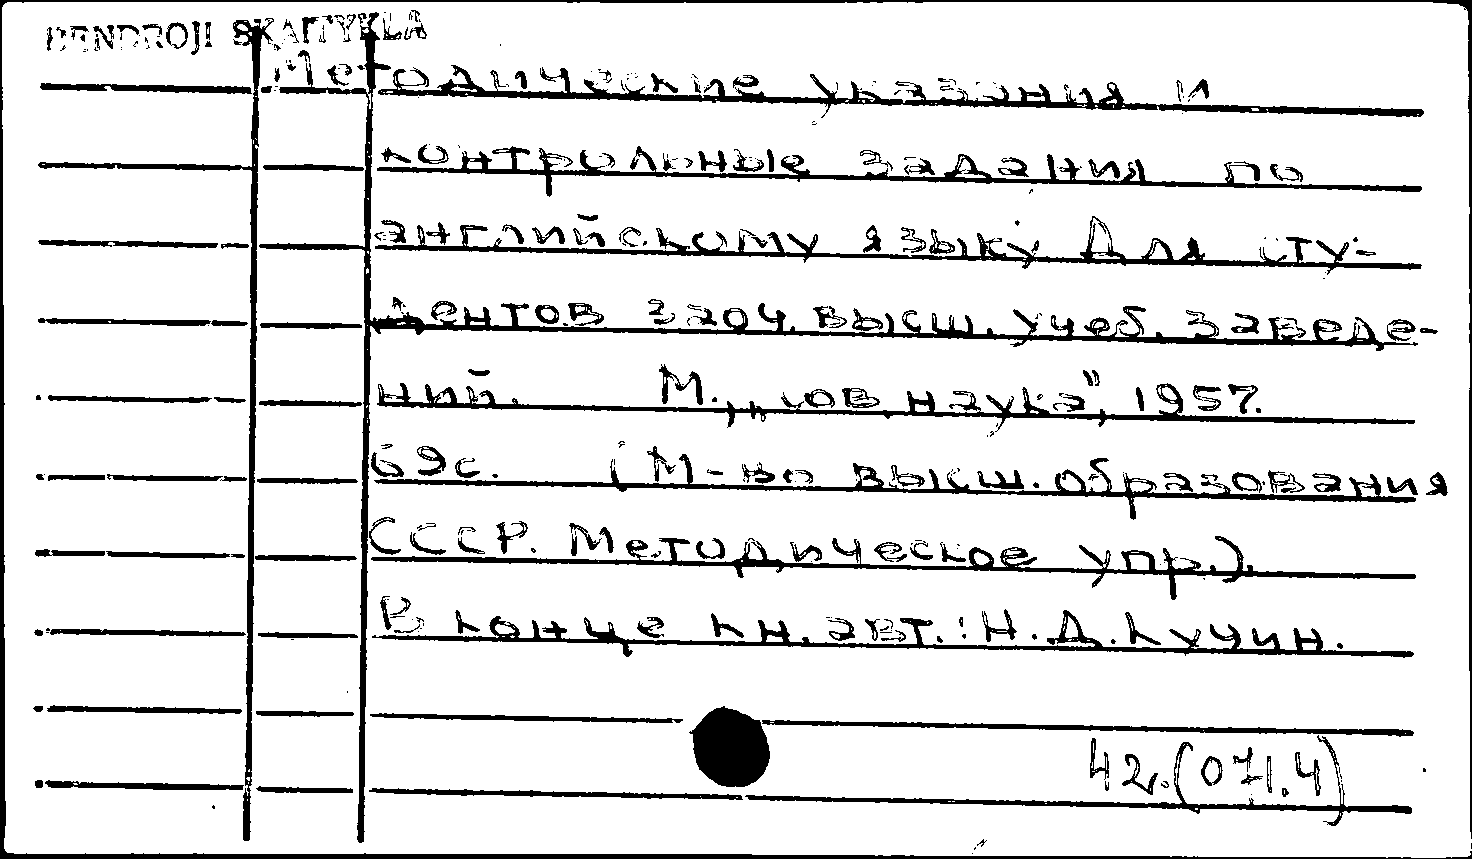 BENDROJI SKAITYKLA
Методические указания и
контрольные задания по
английскому языку Для сту-
дентов заоч. высш. учеб. заведе-
ний. М., „Сов. наука", 1957.
69с. (М-во высш. образования
СССР. Методическое упр.).
В конце кн. авт.: Н.Д.Кучин.
42.(071.4)